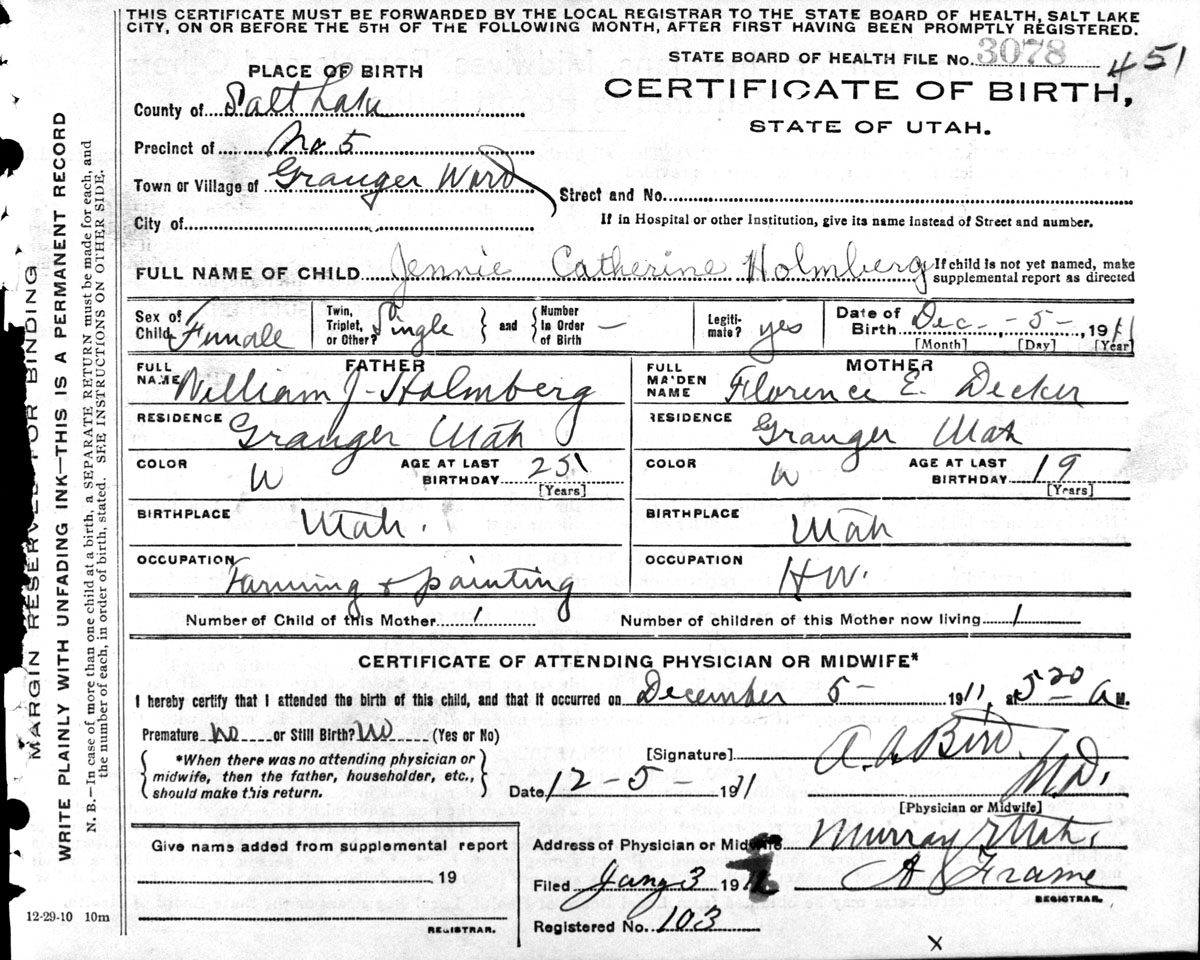 THIS CERTIFICATE MUST BE FORWARDED BY THE LOCAL REGISTRAR TO THE STATE BOARD OF HEALTH, SALT LAKE
CITY, ON OR BEFORE THE 5TH OF THE FOLLOWING MONTH, AFTER FIRST HAVING BEEN PROMPTLY REGISTERED.
STATE BOARD OF HEALTH FILE No. 3078 451
PLACE OF BIRTH
CERTIFICATE OF BIRTH,
STATE OF UTAH.
County of Salt Lake
Precinct of No 5
Town or Village of Granger Ward
Street and No.
City of
If in Hospital or other Institution, give its name instead of Street and number.
FULL NAME OF CHILD Jennie Catherine Holmberg
If child is not yet named, make
supplemental report as directed
Sex of Child Female
Twin, Triplet, or Other? Single
and Number In Order of Birth —
Legiti-mate? yes
Date of Birth Dec - 5 - 1911
[Month] [Day] [Year]
FATHER
FULL NAME William J. Holmberg
MOTHER
FULL MAIDEN NAME Florence E. Decker
RESIDENCE Granger Utah
RESIDENCE Granger Utah
COLOR W
AGE AT LAST BIRTHDAY 25
[Years]
COLOR W
AGE AT LAST BIRTHDAY 19
[Years]
BIRTHPLACE Utah.
BIRTHPLACE Utah
OCCUPATION Farming & painting
OCCUPATION HW.
Number of Child of this Mother 1
Number of children of this Mother now living 1
CERTIFICATE OF ATTENDING PHYSICIAN OR MIDWIFE*
I hereby certify that I attended the birth of this child, and that it occurred on December 5 - 1911, at 5 20 a M.
Premature No or Still Birth? No (Yes or No)
[Signature] A. A. Bird. M.D.
*When there was no attending physician or
midwife, then the father, householder, etc.,
should make this return.
Date 12 - 5 - 1911
[Physician or Midwife]
Give name added from supplemental report
19
REGISTRAR.
Address of Physician or Midwife Murray Utah.
Filed Jany 3 191
A Frame
REGISTRAR.
Registered No. 103
12-29-10 10m
x
MARGIN RESERVED FOR BINDING
WRITE PLAINLY WITH UNFADING INK—THIS IS A PERMANENT RECORD
N. B.—In case of more than one child at a birth, a SEPARATE RETURN must be made for each, and
the number of each, in order of birth, stated. SEE INSTRUCTIONS ON OTHER SIDE.